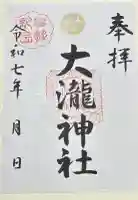 奉拝
大瀧神社
令和七年 月 日